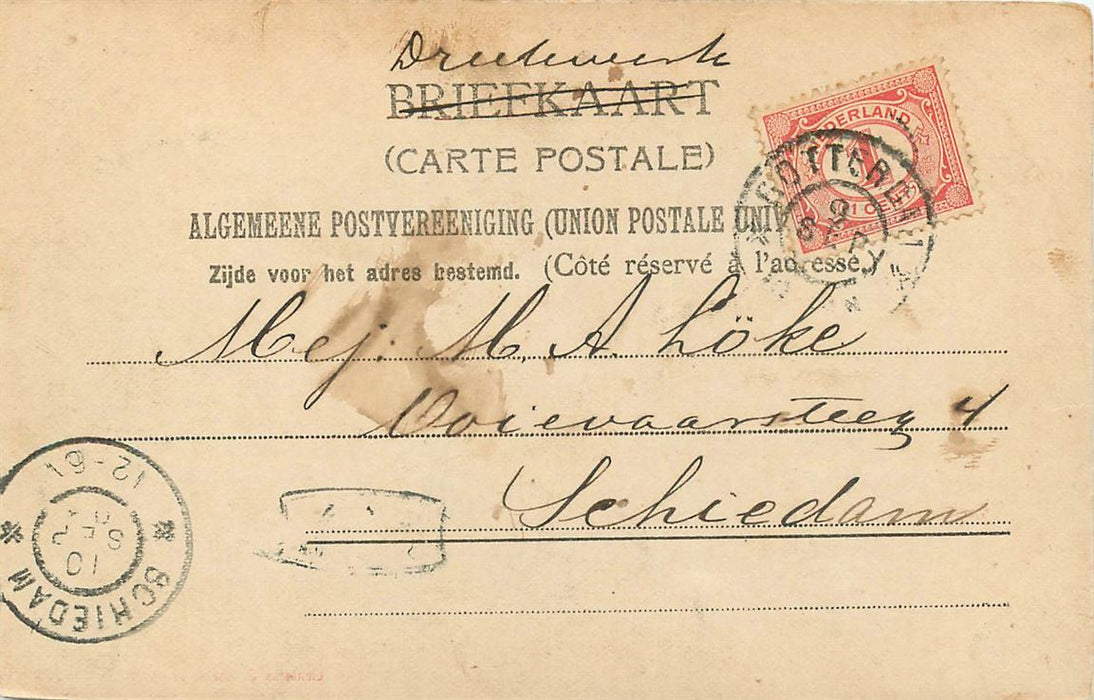 Drukwerk
BRIEFKAART
(CARTE POSTALE)
NEDERLAND
ROTTERDAM
ALGEMEENE POSTVEREENIGING (UNION POSTALE UNIV
Zijde voor het adres bestemd. (Côté réservé à l'adresse)
Mej. M. A. Löke
Ooievaarsteeg 4
Schiedam
12-61
SCHIEDAM